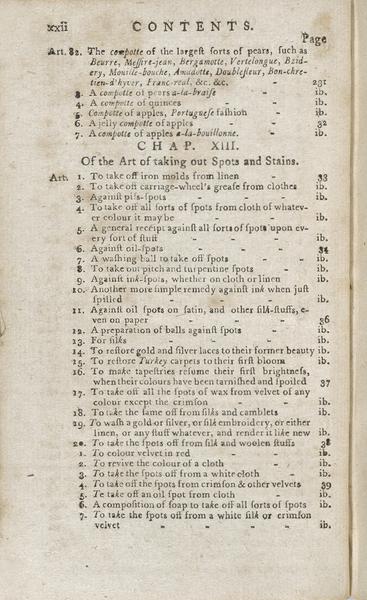 xxii CONTENTS.
Page
Art. 82. The compotte of the largeſt ſorts of pears, ſuch as
Beurre, Meſſire-jean, Bergamotte, Vertelongue, Bzid-
ery, Mouille-bouche, Amadotte, Doublefleur, Bon-chre-
tien-d'hyver, Franc-real, &c. &c. - 231
3. A compotte of pears a-la-braiſe - - ib.
4. A compotte of quinces - - ib.
5. Compotte of apples, Portugueſe faſhion - ib.
6. A jelly compotte of apples - - 32
7. A compotte of apples a-la-bouillonne. - ib.
CHAP. XIII.
Of the Art of taking out Spots and Stains.
Art. 1. To take off iron molds from linen - 33
2. To take off carriage-wheel's greaſe from clothes ib.
3. Againſt piſs-ſpots - - - ib.
4. To take off all ſorts of ſpots from cloth of whatev-
er colour it may be - - - ib.
5. A general receipt againſt all ſorts of ſpots upon ev-
ery ſort of ſtuff - - - - ib.
6. Againſt oil-ſpots - - - 34
7. A waſhing ball to take off ſpots - - ib.
8. To take out pitch and turpentine ſpots - ib.
9. Againſt ink-ſpots, whether on cloth or linen ib.
10. Another more ſimple remedy againſt ink when juſt
ſpilled - - - - ib.
11. Againſt oil ſpots on ſatin, and other ſilk-ſtuffs, e-
ven on paper - - - 36
12. A preparation of balls againſt ſpots - ib.
13. For ſilks - - - - ib.
14. To reſtore gold and ſilver laces to their former beauty ib.
15. To reſtore Turkey carpets to their firſt bloom ib.
16. To make tapeſtries reſume their firſt brightneſs,
when their colours have been tarniſhed and ſpoiled 37
17. To take off all the ſpots of wax from velvet of any
colour except the crimſon - - ib.
18. To take the ſame off from ſilks and camblets ib.
19. To waſh a gold or ſilver, or ſilk embroidery, or either
linen, or any ſtuff whatever, and render it like new ib.
20. To take the ſpots off from ſilk and woolen ſtuffs 38
1. To colour velvet in red - - ib.
2. To revive the colour of a cloth - - ib.
3. To take the ſpots off from a white cloth - ib.
4. To take off the ſpots from crimſon & other velvets 39
5. To take off an oil ſpot from cloth - ib.
6. A compoſition of ſoap to take off all ſorts of ſpots ib.
7. To take the ſpots off from a white ſilk or crimſon
velvet - - - - ib.